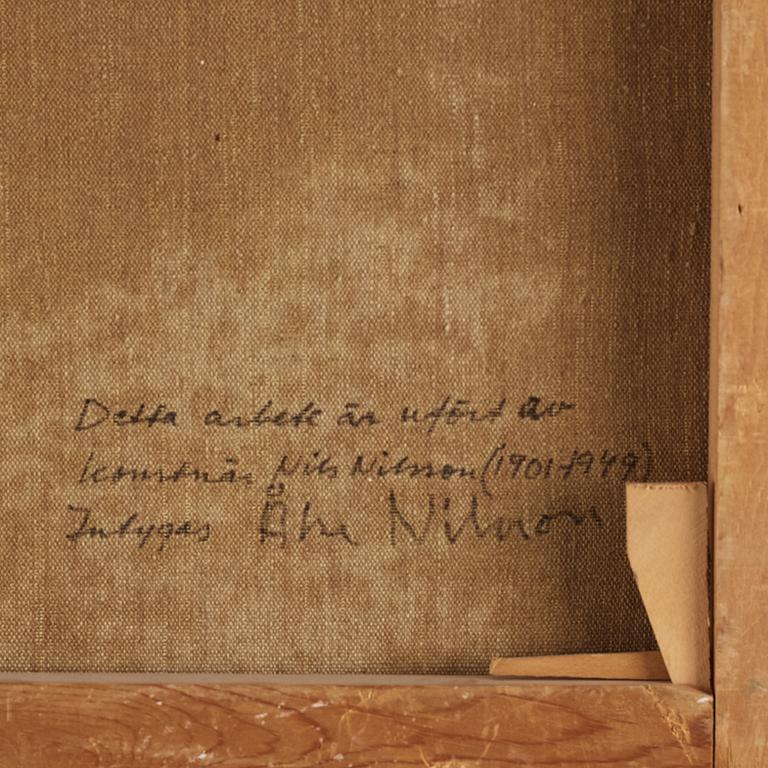 Detta arbete är utfört av
konstnär Nils Nilsson (1901-1949)
Intygas Åke Nilsson